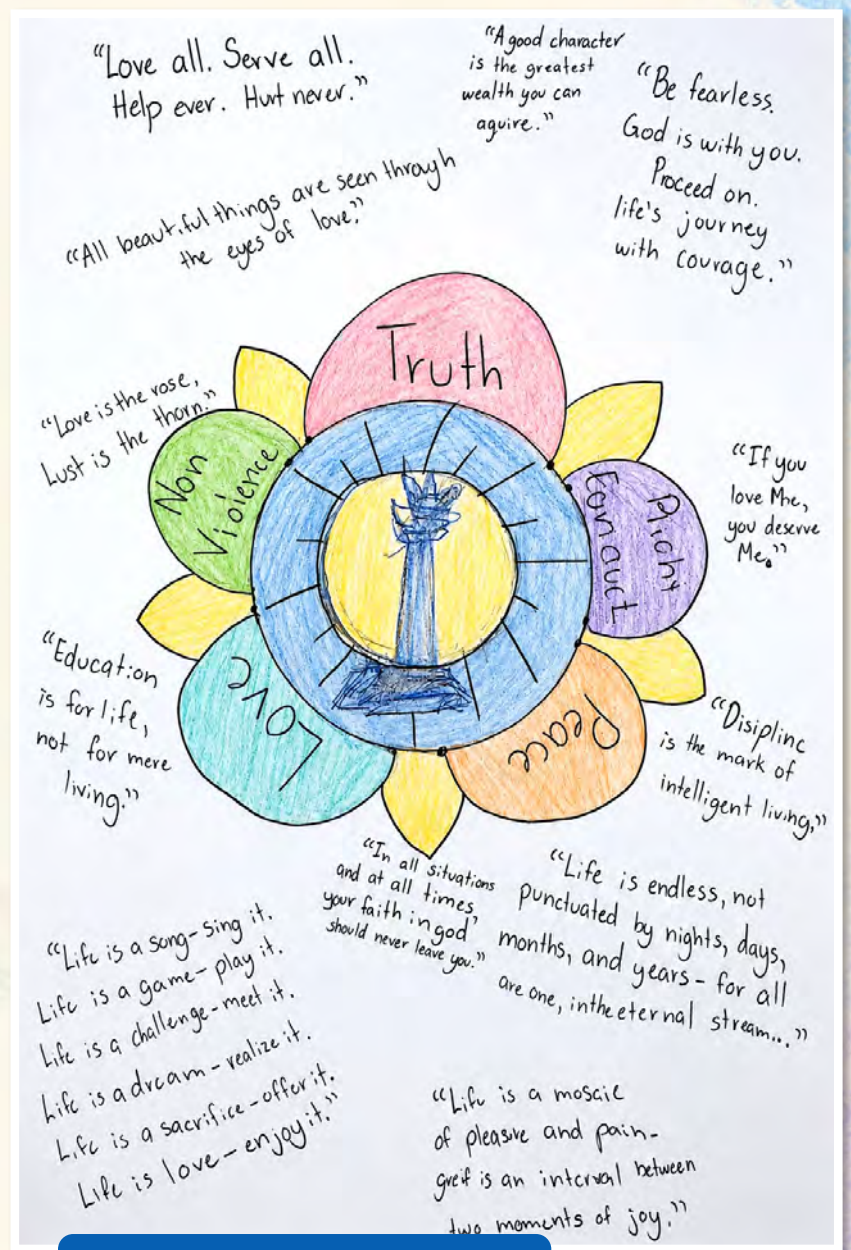 “Love all. Serve all.
Help ever. Hurt never.”
“A good character
is the greatest
wealth you can
aquire.”
“Be fearless.
God is with you.
Proceed on.
life's journey
with courage.”
“All beautiful things are seen through
the eyes of love.”
Truth
“Love is the rose,
Lust is the thorn.”
Non
Violence
Right
Conduct
“If you
love Me,
you deserve
Me.”
Love
Peace
“Education
is for life,
not for mere
living.”
“Disipline
is the mark of
intelligent living,”
“In all situations
and at all times,
your faith in god
should never leave you.”
“Life is endless, not
punctuated by nights, days,
months, and years - for all
are one, in the eternal stream...”
“Life is a song - sing it.
Life is a game - play it.
Life is a challenge - meet it.
Life is a dream - realize it.
Life is a sacrifice - offer it.
Life is love - enjoy it.”
“Life is a mosaic
of pleasure and pain -
greif is an interval between
two moments of joy.”